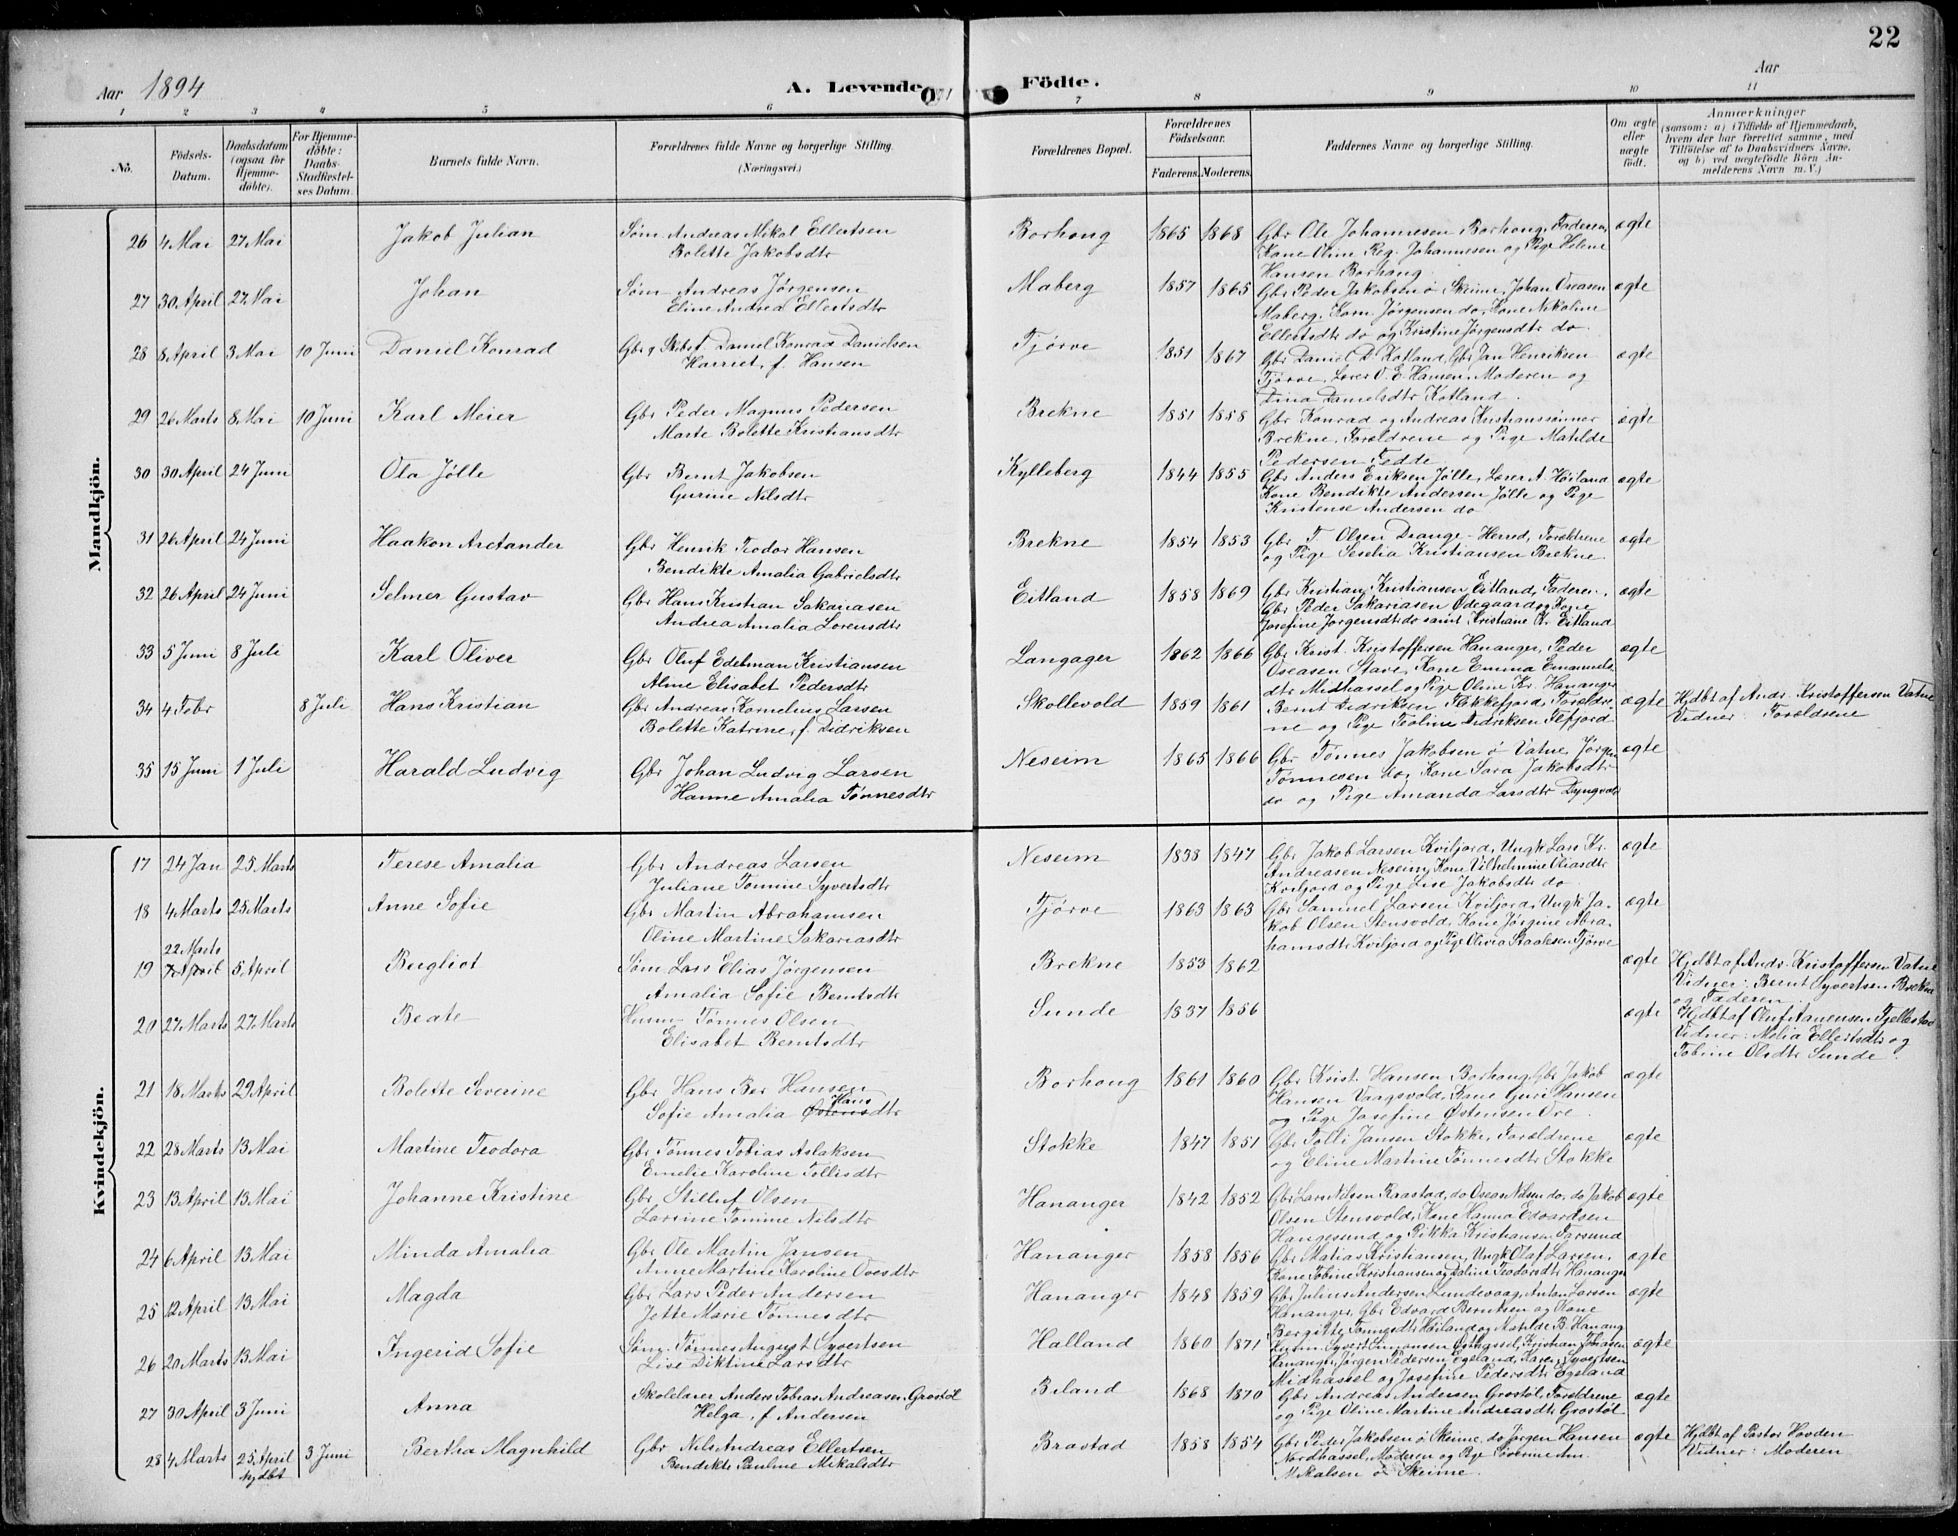 22
Aar 1894
A. Levende Födte.
Aar
1 2 3 4 5 6 7 8 9 10 11
No.
Födsels-Datum.
Daabsdatum (ogsaa for Hjemme-döbte).
For Hjemme-döbte: Daabs-Stadfæstel-ses Datum.
Barnets fulde Navn.
Forældrenes fulde Navne og borgerlige Stilling. (Næringsvei.)
Forældrenes Bopæl.
Forældrenes Födselsaar.
Faderens. Moderens.
Faddernes Navne og borgerlige Stilling.
Om ægte eller uægte födt.
Anmærkninger
(saasom: a) i Tilfælde af Hjemmedaab, hvem der har forrettet samme, med Tilföielse af to Daabsvidners Navne. og b) ved uægtefödte Börn An-melderens Navn m. V.)
Mandkjön.
26 4 Mai 27 Mai Jakob Julian Søm. Andreas Mikal Ellertsen Borhong 1865 1868 Gbr Ole Johannesen Borhong, Faderen, ægte
Bolette Jakobsdtr Kone Oline Reg. Johannesen og Pige Helene
Hansen Borhong.
27 30 April 27 Mai Johan Søm Andreas Jørgensen Maberg 1857 1865 Gbr Peder Jakobsen ø. Skeime, Johan Oseasen ægte
Eline Andrea Ellertsdtr Maberg, Korn. Jørgensen do, Kone Nikoline
Ellertsdtr do og Kristine Jørgensdtr do.
28 8 April 3 Mai 10 Juni Daniel Konrad Gbr g Skibst. Daniel Konrad Danielsen Tjørve 1851 1867 Gbr Daniel D. Kotland, Gbr Jan Henriksen ægte
Harriet, f. Hansen Tjørve, Lærer O. E. Hansen, Moderen og
Dina Danielsdtr Kotland.
29 26 Marts 8 Mai 10 Juni Karl Meier Gbr Peder Magnus Pedersen Brekne 1851 1858 Gbr Konrad og Andreas Kristianssønner ægte
Marte Bolette Kristiansdtr Brekne, Forældrene og Pige Matilde
Pedersen Fedde
30 30 April 24 Juni Ola Jølle Gbr Bernt Jakobsen Kylleberg 1844 1855 Gbr Anders Eriksen Jølle, Lærer A. Høiland ægte
Gurine Nilsdtr Kone Bendikte Andersen Jølle og Pige
Kristense Andersen do
31 26 April 24 Juni Haakon Aretander Gbr Henrik Teodor Hansen Brekne 1854 1853 Gbr T. Olsen Drange-Herred, Forældrene ægte
Bendikte Amalia Gabrielsdtr og Pige Seselia Kristiansen Brekne
32 26 April 24 Juni Selmer Gustav Gbr Hans Kristian Sakariasen Eitland 1858 1869 Gbr Kristian Kristiansen Eitland, Faderen, ægte
Andrea Amalia Lorensdtr Gbr Peder Sakariasen Ødegaard og Kone
Josefine Jørgensdtr do samt Kristiane K. Eitland
33 5 Juni 8 Juli Karl Oliver Gbr Oluf Edelman Kristiansen Langager 1862 1866 Gbr Krist. Kristoffersen Hananger, Peder ægte
Aline Elisabet Pedersdtr Oseasen Stave, Kone Emma Emanuels
dtr Midhassel og Pige Oline Kr. Hananger
34 4 Febr 8 Juli Hans Kristian Gbr Andreas Kornelius Larsen Skollevold 1859 1861 Bernt Didriksen Flekkefjord, Forældre- ægte Hjdbt af Andr. Kristoffersen Vatne
Bolette Katrine, f. Didriksen ne og Pige Teoline Didriksen Flefjord Vidner: Forældrene
35 15 Juni 1 Juli Harald Ludvig Gbr Johan Ludvig Larsen Neseim 1865 1866 Gbr Tønnes Jakobsen ø Vatne, Jørgen ægte
Hanne Amalia Tønnesdtr Tønnesen do, Kone Sara Jakobsdtr
do og Pige Amanda Larsdtr Dyngvold
Kvindekjön.
17 24 Jan 25 Marts Terese Amalia Gbr Andreas Larsen Neseim 1838 1847 Gbr Jakob Larsen Kviljord, Ungk Lars Kr. ægte
Juliane Tomine Syvertsdtr Andreasen Neseim, Kone Vilhelmine Oliasdtr
Kviljord og Pige Lise Jakobsdtr do
18 4 Marts 25 Marts Anne Sofie Gbr Martin Abrahamsen Tjørve 1863 1863 Gbr Samuel Larsen Kviljord, Ungk Ja- ægte
Oline Martine Sakariasdtr kob Olsen Stensvold, Kone Jørgine Abra-
hamsdtr Kviljord og Pige Olivia Staalesen Tjørve
22 Marts
19 5 April Bugliot Søm Lars Elias Jørgensen Brekne 1853 1862 ægte Hjdbt af Andr. Kristoffersen Vatne
Amalia Sofie Berntsdtr Vidner: Bernt Syvertsen Brekne
og Faderen
20 27 Marts 27 Marts Beate Husm Tønnes Olsen Sunde 1837 1856 ægte Hjdbt af Oluf Aanensen Fjellestad
Elisabet Berntsdtr Vidner: Melia Ellertsdtr og
Tobine Olsdtr Sunde.
21 18 Marts 29 April Bolette Severine Gbr Hans Ber Hansen Borhong 1861 1860 Gbr Krist. Hansen Borhong, Gbr Jakob ægte
Sofie Amalia Hansdtr Hansen Vaagsvold, Kone Guri Hansen
og Pige Josefine Østensen Ore.
22 28 Marts 13 Mai Martine Teodora Gbr Tønnes Tobias Aslaksen Stokke 1847 1851 Gbr Tolli Jansen Stokke, Forældrene ægte
Emelie Karoline Tollisdtr og Eline Martine Tønnesdtr Stokke
23 13 April 13 Mai Johanne Kristine Gbr Stilluf Olsen Hananger 1842 1852 Gbr Lars Nilsen Raastad, do Oseas Nilsen do, do Jakob ægte
Larsine Tomine Nilsdtr Olsen Stensvold, Kone Hanna Edvardsen
Haugesund og Rikka Kristiansen Farsund
24 6 April 13 Mai Minda Amalia Gbr Ole Martin Jansen Hananger 1858 1856 Gbr Matias Kristiansen, Ungk Olaf Larsen, ægte
Anne Martine Karoline Ovesdtr Kone Tobine Kristiansen og Taline Teodorsdtr Hananger
25 12 April 13 Mai Magda Gbr Lars Peder Andersen Hananger 1848 1859 Gbr Julius Andersen Lundevaag, Anton Larsen ægte
Jotte Marie Tønnesdtr Hananger, Gbr Edvard Berntsen og Kone
Bergitte Tønnesdtr Høiland og Matilde B. Hanang
26 20 Marts 13 Mai Ingerid Sofie Søm. Tønnes August Syvertsen Halland 1860 1871 Husm Syvert Simonsen Østhassel, Kristian Tobiasen ægte
Lise Diktine Larsdtr Hananger, Jørgen Pedersen Egeland, Karen Syvertsen
Midhassel og Josefine Pedersdtr Egeland
27 30 April 3 Juni Anna Skolelærer Anders Tobias Andreasen Grostøl Beland 1868 1870 Gbr Andreas Andersen Grostøl Forældrene ægte
Helga, f. Andersen og Pige Oline Martine Andreasdtr Grostøl
28 4 Marts 25 April 3 Juni Bertha Magnhild Gbr Nils Andreas Ellertsen Braastad 1858 1854 Gbr Peder Jakobsen ø Skeime, do Jørgen Hansen ægte Hjdbt af Pastor Hovden
hjdbt Bendikte Pauline Mikalsdtr Nordhassel, Moderen og Pige Severine Ann Vidner: Moderen
Mikalsen ø Skeime.